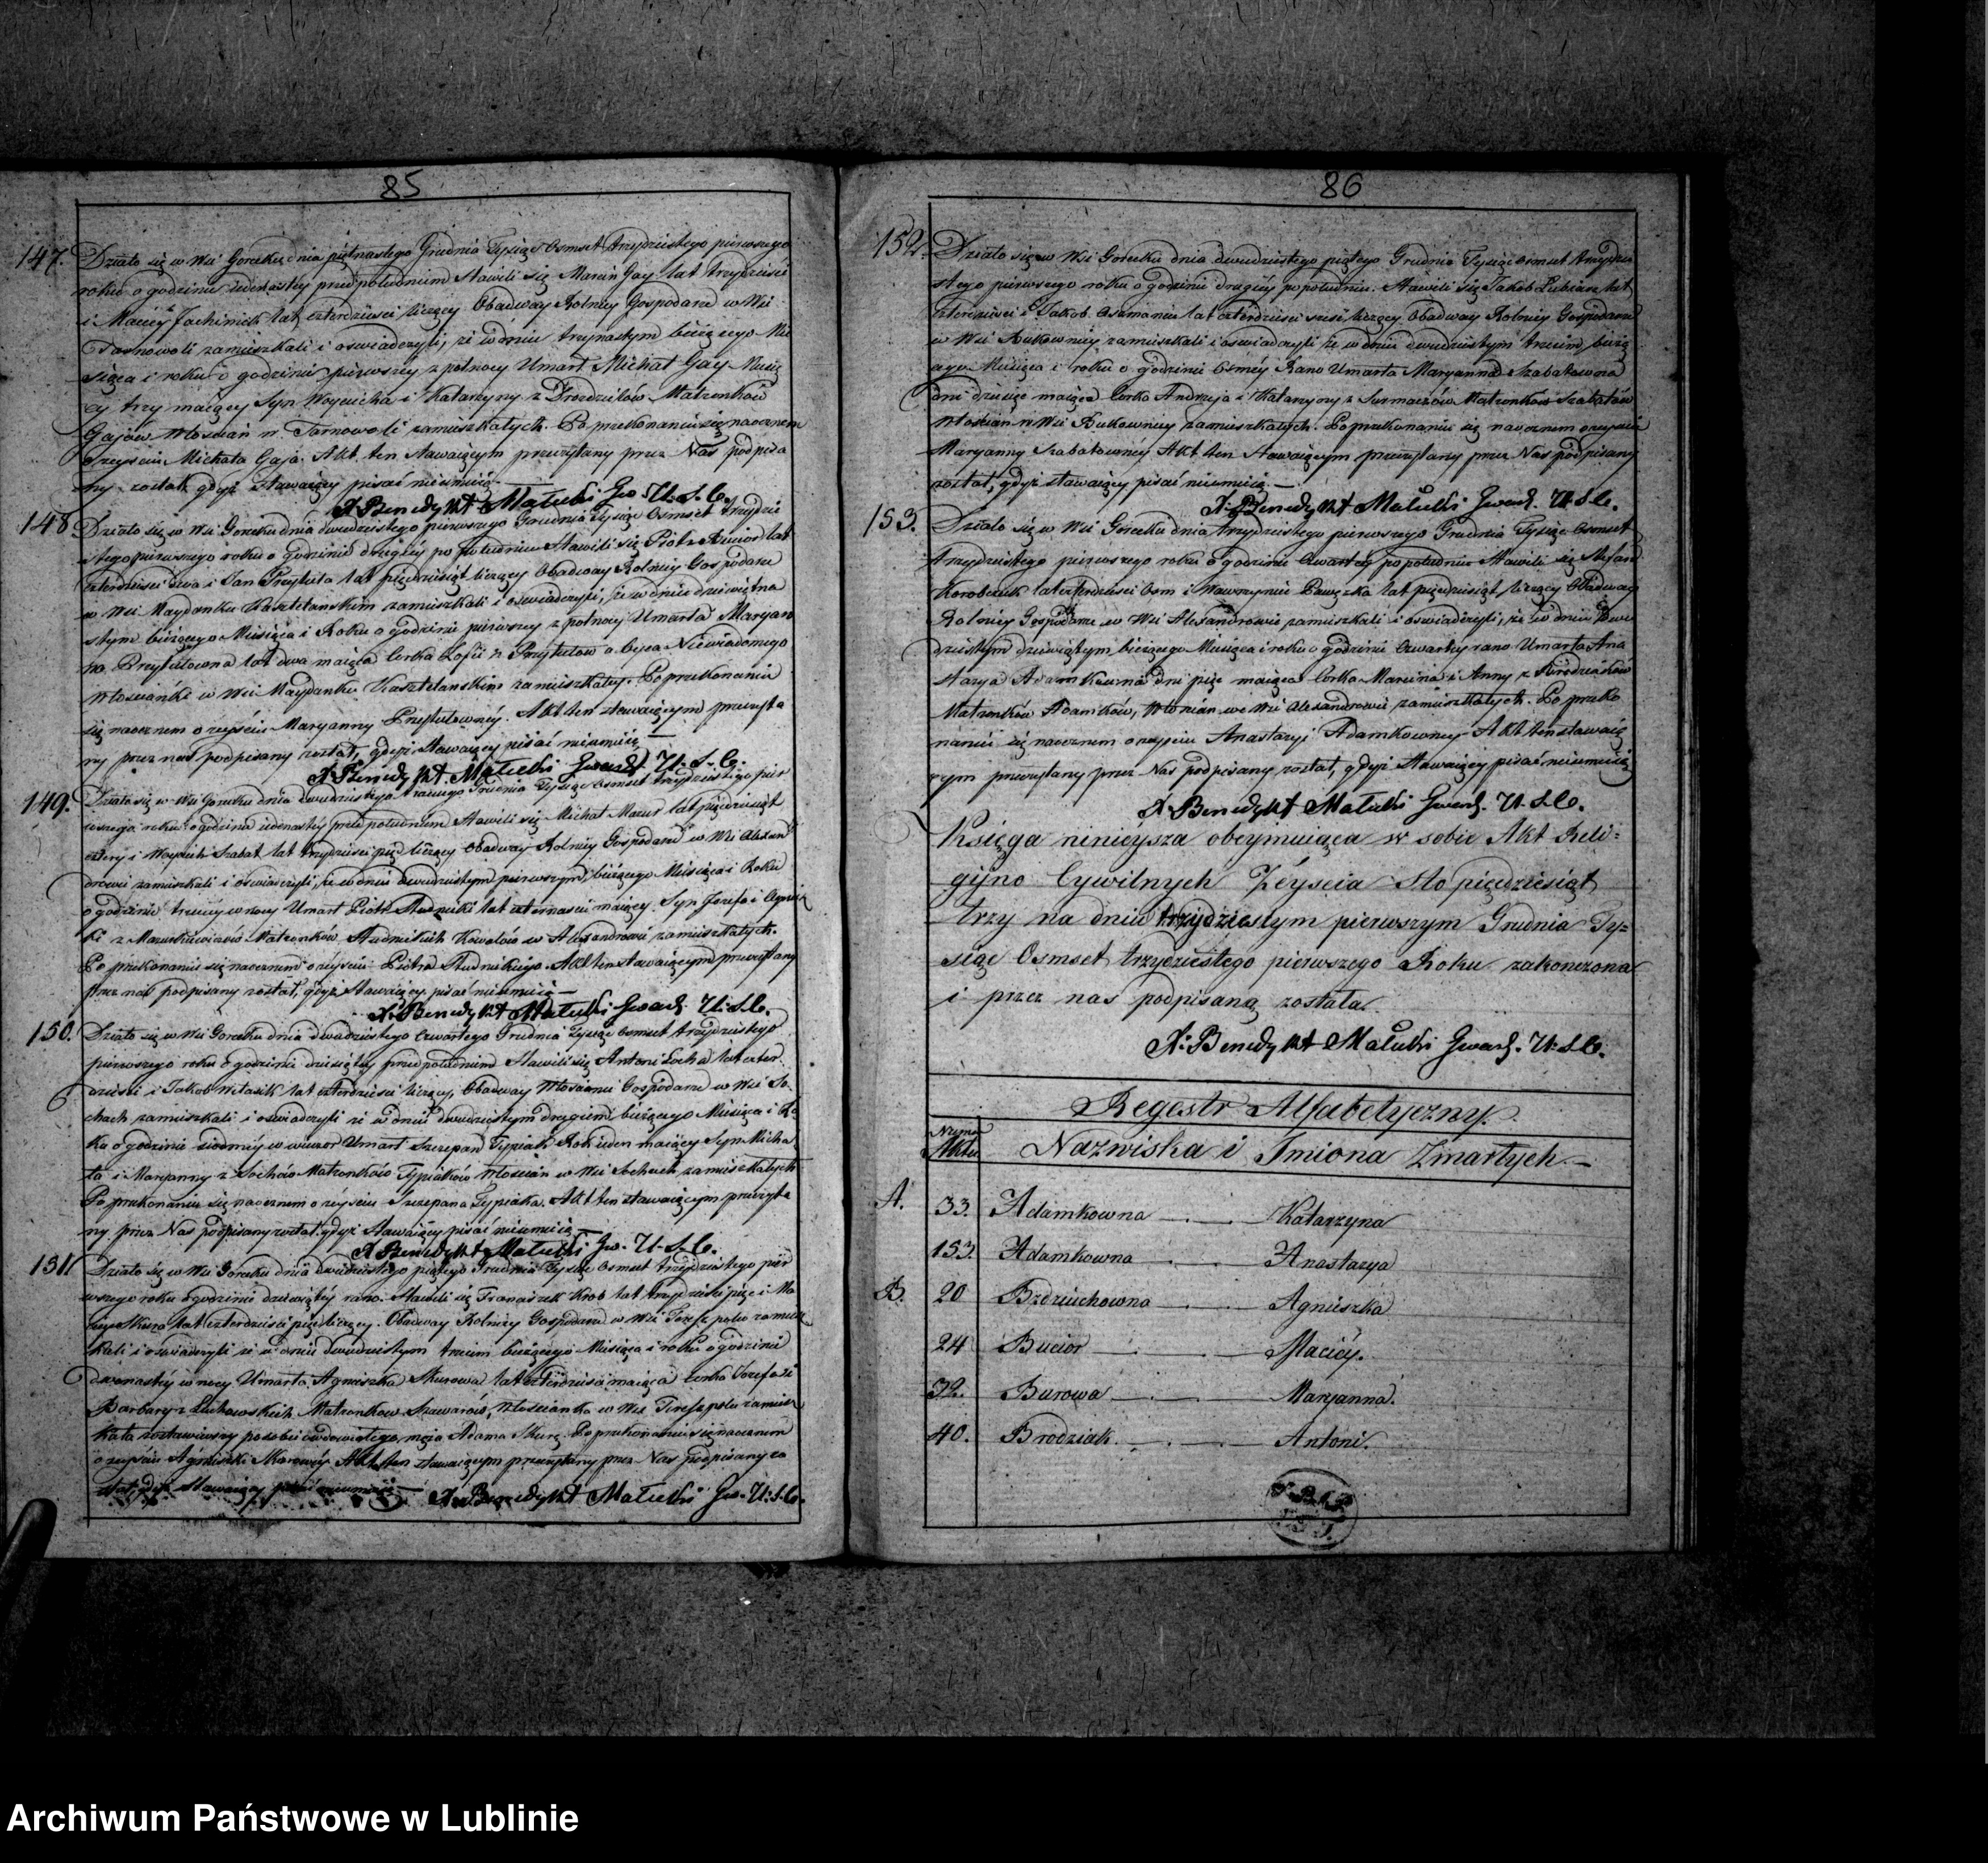 85
147. Działo się w Wsi Górecku dnia piętnastego Grudnia Tysiąc Osmset trzydziestego pierwszego
roku o godzinie iedenastey przed południem Stawili się Marcin Gay lat trzydzieści
i Maciey Jachimek lat czterdzieści liczący Obadway Rolnicy Gospodarze w Wsi
Tarnowoli zamieszkali i oswiadczyli, że w dniu trzynastym bieżącego Mie
siąca i roku o godzinie pierwszey z północy Umarł Michał Gay Miesię
cy trzy maiący Syn Woyciecha i Katarzyny z Drozdzików Małżonków
Gajów Włoscian w Tarnowoli zamieszkałych. Po przekonaniu się naocznem
o zeysciu Michała Gaja. Akt ten stawaiącym przeczytany przez Nas podpisa
ny został, gdyż Stawaiący pisać nieumieią.
X. Benedykt Małecki Gw. U. S. C.
148 Działo się w Wsi Górecku dnia dwudziestego pierwszego Grudnia Tysiąc Osmset trzydzie
stego pierwszego roku o godzinie drugiey po południu Stawili się Piotr Bucior lat
czterdzieści dwa i Jan Przytuła lat pięćdziesiąt liczący Obadway Rolnicy Gospodarze
w Wsi Maydanku Kasztelanskim zamieszkali i oswiadczyli, że w dniu dziewiętna
stym bieżącego Miesiąca i Roku o godzinie pierwszey z północy Umarła Maryan
na Przytułowna lat dwa maiąca Corka Zofii z Przytułow a oyca Niewiadomego
Włoscianki w Wsi Maydanku Kasztelanskim zamieszkałey. Po przekonaniu
się naocznem o zeysciu Maryanny Przytułowney. Akt ten stawaiącym przeczyta
ny przez nas podpisany został, gdyż Stawaiący pisać nieumieią
X. Benedykt Małecki Gward. U. S. C.
149. Działo się w Wsi Górecku dnia dwudziestego trzeciego Grudnia Tysiąc Osmset trzydziestego pier
wszego roku o godzinie iedenastey przed południem Stawili się Michał Mazur lat pięćdziesiąt
cztery i Woyciech Szabat lat trzydzieści pięć liczący Obadway Rolnicy Gospodarze w Wsi Alexan
drowie zamieszkali i oswiadczyli, że w dniu dwudziestym pierwszym bieżącego Miesiąca i Roku
o godzinie trzeciey w nocy Umarł Piotr Studnicki lat czternascie maiący Syn Jozefa i Agniesz
ki z Mazurkiewiczów Małżonków Studnickich Kowalów w Alexandrowie zamieszkałych.
Po przekonaniu się naocznem o zeysciu Piotra Studnickiego. Akt ten stawaiącym przeczytany
przez nas podpisany został, gdyż Stawaiący pisać nieumieią
X. Benedykt Małecki Gward. U. S. C.
150. Działo się w Wsi Górecku dnia dwudziestego Czwartego Grudnia Tysiąc Osmset trzydziestego
pierwszego roku o godzinie dziesiątey przed południem Stawili się Antoni Socha lat czter
dzieści i Jakob Witasik lat czterdzieści liczący, Obadway Włoscianie Gospodarze w Wsi So
chach zamieszkali i oswiadczyli że w dniu dwudziestym drugiem bieżącego Miesiąca i Ro
ku o godzinie siodmey w wieczor Umarł Szczepan Typiak Rok ieden maiący Syn Micha
ła i Maryanny z Sochów Małżonków Typiaków Włoscian w Wsi Sochach zamieszkałych
Po przekonaniu się naocznem o zeysciu Szczepana Typiaka. Akt ten stawaiącym przeczyta
ny przez Nas podpisany został gdyż Stawaiący pisać nieumieią
X. Benedykt Małecki Gw. U. S. C.
151 Działo się w Wsi Górecku dnia dwudziestego piątego Grudnia Tysiąc Osmset trzydziestego pier
wszego roku o godzinie dziewiątey rano. Stawili się Franciszek Koob lat trzydzieści pięć i
Skura lat czterdzieści pięć liczący Obadway Rolnicy Gospodarze w Wsi Tereszpolu zamiesz
kali i oswiadczyli że w dniu Dwudziestym trzecim bieżącego Miesiąca i roku o godzinie
dwunastey w nocy Umarła Agnieszka Skurowa lat czterdzieści maiąca Corka Jozefa i
Barbary z Małżonkow Włoscianka w Wsi Tereszpolu zamiesz
kała zostawiwszy po sobie owdowiałego męża Adama Skurę. Po przekonaniu się naocznem
o zeysciu Agnieszki Skurowey Akt ten stawaiącym przeczytany przez Nas podpisany zo
stał, gdyż Stawaiący pisać nieumieią X. Benedykt Małecki Gw. U. S. C.
86
152. Działo się w Wsi Górecku dnia dwudziestego piątego Grudnia Tysiąc Osmset trzydzie
stego pierwszego roku o godzinie drugiey po południu. Stawili się Jakob Lubiarz lat
czterdzieści i Jakob lat czterdzieści sześć liczący Obadway Rolnicy Gospodarze
w Wsi Bukownicy zamieszkali i oswiadczyli że w dniu dwudziestym trzecim bieżą
cego Miesiąca i roku o godzinie osmey Rano Umarła Maryanna Szabatowna
dni dziesięć maiąca Corka Andrzeja i Katarzyny z Surmaczów Małżonków Szabatów
Włoscian w Wsi Bukownicy zamieszkałych. Po przekonaniu się naocznem o zeysciu
Maryanny Szabatowney Akt ten stawaiącym przeczytany przez Nas podpisany
został, gdyż stawaiący pisać nieumieią.
X. Benedykt Małecki Gward. U. S. C.
153. Działo się w Wsi Górecku dnia trzydziestego pierwszego Grudnia Tysiąc Osmset
trzydziestego pierwszego roku o godzinie Czwartey po południu Stawili się Stefan
Korobczuk lat czterdzieści Osm i Wawrzyniec Pawęzka lat pięćdziesiąt liczący Obadway
Rolnicy Gospodarze w Wsi Alexandrowie zamieszkali i oswiadczyli, że w dniu Dwu
dziestym dziewiątym bieżącego Miesiąca i roku o godzinie Czwartey rano Umarła Ana
stazya Adamkowna dni pięć maiąca Corka Marcina i Anny z
Małżonków Adamków, Włoscian we Wsi Alexandrowie zamieszkałych. Po przeko
naniu się naocznem o zeysciu Anastazyi Adamkowney Akt ten stawaią
cym przeczytany przez Nas podpisany został, gdyż Stawaiący pisać nieumieią
X. Benedykt Małecki Gward. U. S. C.
Księga ninieysza obeymuiąca w sobie Akt Reli=
giyno Cywilnych Zéyscia Sto pięcdziesiąt
trzy na dniu trzydziestym pierwszym Grudnia Ty=
siąc Osmset trzydziestego pierwszego Roku zakonczona
i przez nas podpisaną została.
X. Benedykt Małecki Gward. U. S. C.
Regestr Alfabetyczny.
Numer Aktu Nazwiska i Imiona Zmarłych.
A. 33. Adamkowna Katarzyna
153. Adamkowna Anastazya
B. 20 Bzdziuchowna Agnieszka
24 Bucior Maciéy.
32. Burowa Maryanna.
40. Brodziak Antoni.
Archiwum Państwowe w Lublinie